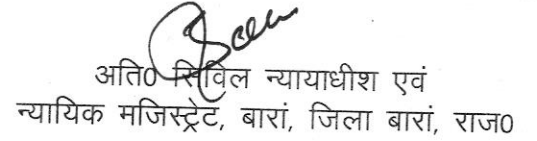 अति0 सिविल न्यायाधीश एवं
न्यायिक मजिस्ट्रेट, बारां, जिला बारां, राज0